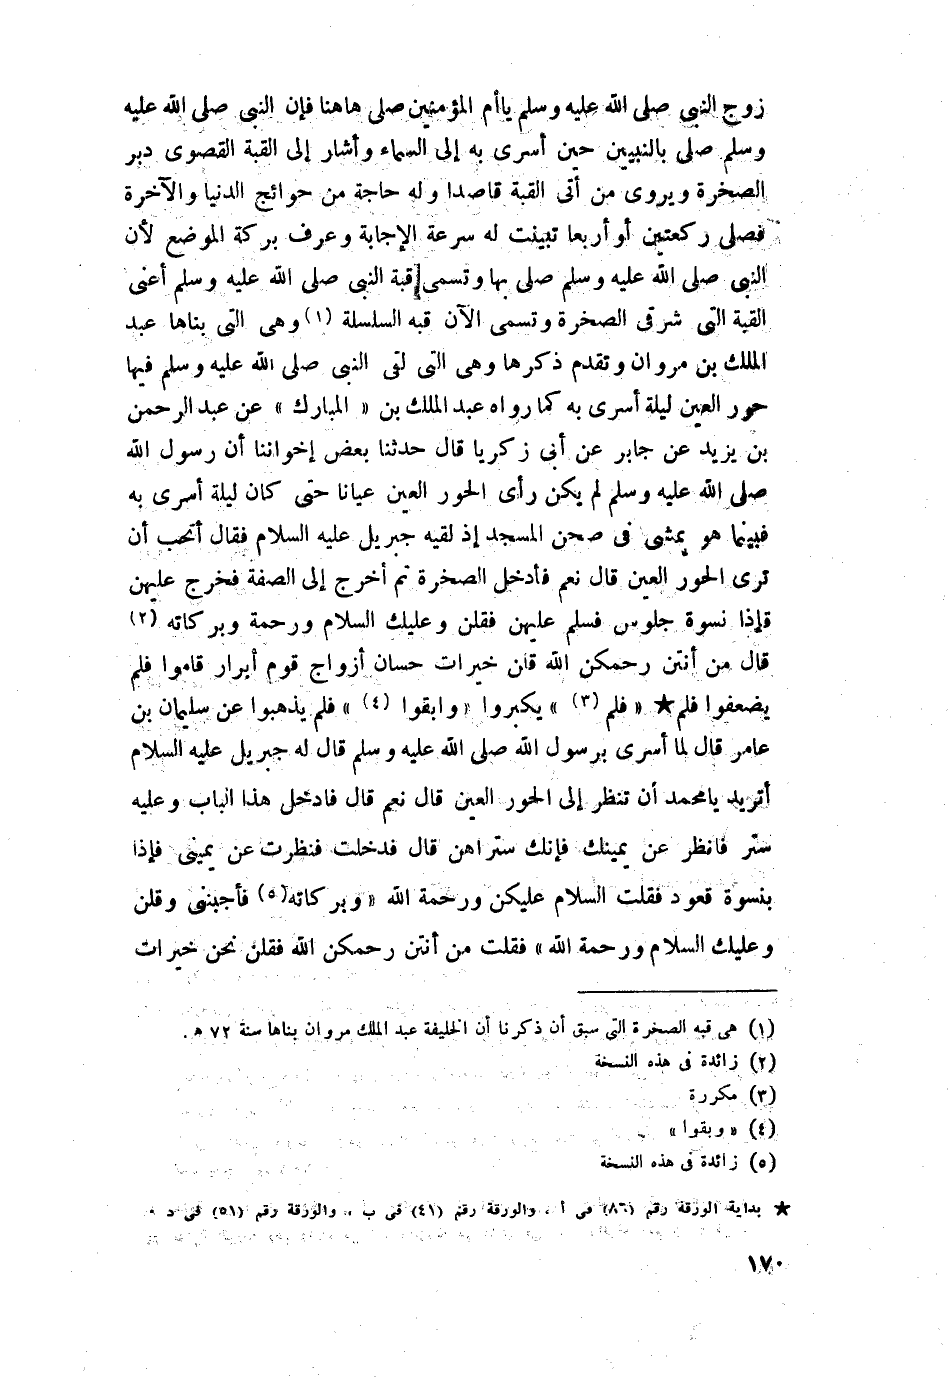 زوج النبي صلى الله عليه وسلم ياأم المؤمنين صلى هاهنا فإن النبي صلى الله عليه
وسلم صلى بالنبيين حين أسرى به إلى السماء وأشار إلى القبة القصوى دبر
الصخرة ويروى من أتى القبة قاصدا وله حاجة من حوائج الدنيا والآخرة
فصلى ركعتين أو أربعا تبينت له سرعة الإجابة وعرف بركة الموضع لأن
النبي صلى الله عليه وسلم صلى بها وتسمى قبة النبي صلى الله عليه وسلم أعنى
القبة التي شرقى الصخرة وتسمى الآن قبه السلسلة (١) وهى التي بناها عبد
الملك بن مروان وتقدم ذكرها وهى التي لقى النبي صلى الله عليه وسلم فيها
حور العين ليلة أسرى به كما رواه عبد الملك بن « المبارك » عن عبد الرحمن
بن يزيد عن جابر عن أبى زكريا قال حدثنا بعض إخواننا أن رسول الله
صلى الله عليه وسلم لم يكن رأى الحور العين عيانا حتى كان ليلة أسرى به
فبينما هو يمشى فى صحن المسجد إذ لقيه جبريل عليه السلام فقال أتحب أن
ترى الحور العين قال نعم فأدخل الصخرة ثم أخرج إلى الصفة فخرج عليهن
فإذا نسوة جلوس فسلم عليهن فقلن وعليك السلام ورحمة وبركاته (٢)
قال من أنتن رحمكن الله قان خيرات حسان أزواج قوم أبرار قاموا فلم
يضعفوا فلم ★ « فلم (٣) » يكبروا « وابقوا (٤) » فلم يذهبوا عن سليمان بن
عامر قال لما أسرى برسول الله صلى الله عليه وسلم قال له جبريل عليه السلام
أتريد يامحمد أن تنظر إلى الحور العين قال نعم قال فادخل هذا الباب وعليه
ستر فانظر عن يمينك فإنك ستراهن قال فدخلت فنظرت عن يمينى فإذا
بنسوة قعود فقلت السلام عليكن ورحمة الله « وبركاته (٥) فأجبننى وقلن
وعليك السلام ورحمة الله » فقلت من أنتن رحمكن الله فقلن نحن خيرات
(١) هى قبه الصخرة التي سبق أن ذكرنا أن الخليفة عبد الملك مروان بناها سنة ٧٢ هـ .
(٢) زائدة فى هذه النسخة
(٣) مكررة
(٤) « وبقوا »
(٥) زائدة فى هذه النسخة
★ بداية الورقة رقم (٨٦) فى أ ، والورقة رقم (٤١) فى ب ، والورقة رقم (٥١) فى د .
١٧٠